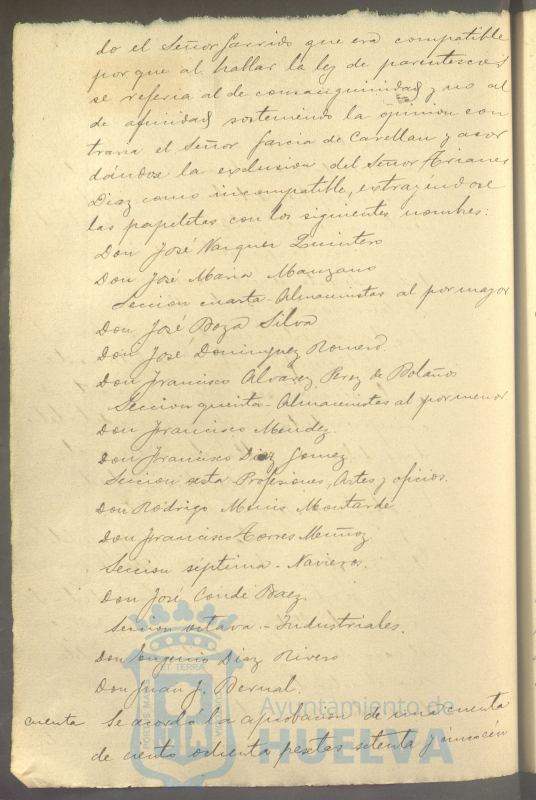 do el Señor Garrido que era compatible
porque al hablar la ley de parentescos
se referia al de consanguinidad y no al
de afinidad sosteniendo la opinion con
traria el Señor Garcia de Carellan y acor
dándose la exclusion del Señor Arianes
Diaz como incompatible, extrayéndose
las papeletas con los siguientes nombres:
Don José Vazquez Quintero
Don José Maria Manzano
Seccion cuarta - Almacenistas al por mayor
Don José Boza Silva
Don José Dominguez Romero
Don Francisco Alvarez Perez de Bolaños
Seccion quinta - Almacenistas al por menor
Don Francisco Mendez
Don Francisco Diaz Gomez
Seccion sesta Profesiones, Artes y oficios.
Don Rodrigo Menis Montardé
Don Francisco Torres Muñoz
Seccion séptima - Navieros.
Don José Conde Baez
Seccion octava - Industriales.
Don Eugenio Diaz Rivero
Don Juan J. Bernal.
cuenta Se acordó la aprobacion de una cuenta
de ciento ochenta pesetas setenta y cinco cén
PORTUS MARIS ET TERRÆ CUSTODIA
Ayuntamiento de
HUELVA